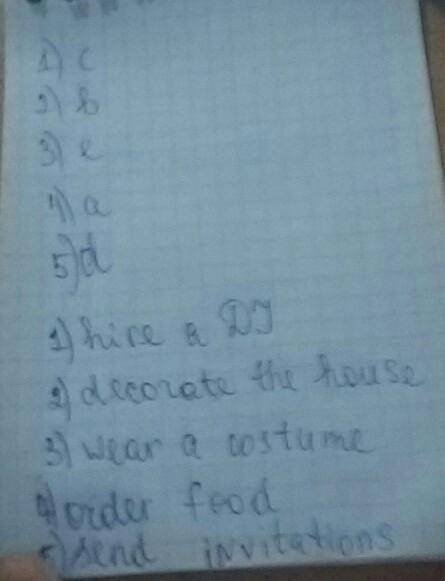 1) c
2) b
3) e
4) a
5) d
1) hire a DJ
2) decorate the house
3) wear a costume
4) order food
5) send invitations